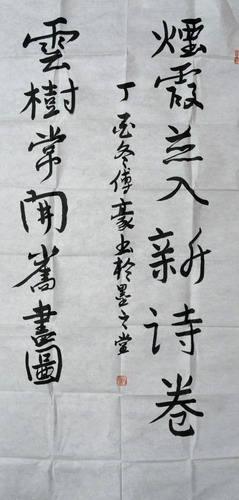 煙霞並入新詩卷
雲樹常開舊畫圖
丁酉冬傅豪書於墨之堂